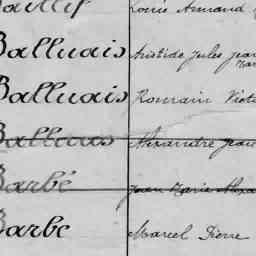 Louis Armand
Balluais Aristide Jules Jean
Balluais Romain Victo
Balluais Alexandre Jean
Barbé Jean Marie Alexa
Barbe Marcel Pierre